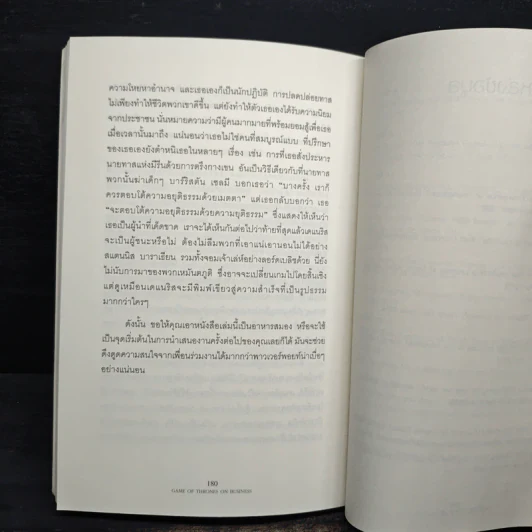 ความโหยหาอำนาจ และเธอเองก็เป็นนักปฏิบัติ การปลดปล่อยทาส
ไม่เพียงทำให้ชีวิตพวกเขาดีขึ้น แต่ยังทำให้ตัวเธอเองได้รับความนิยม
จากประชาชน นั่นหมายความว่ามีผู้คนมากมายที่พร้อมยอมสู้เพื่อเธอ
เมื่อเวลานั้นมาถึง แน่นอนว่าเธอไม่ใช่คนที่สมบูรณ์แบบ ที่ปรึกษา
ของเธอเองยังตำหนิเธอในหลายๆ เรื่อง เช่น การที่เธอสั่งประหาร
นายทาสแห่งมีรีนด้วยการตรึงกางเขน อันเป็นวิธีเดียวกับที่นายทาส
พวกนั้นฆ่าเด็กๆ บาร์ริสตัน เซลมี บอกเธอว่า “บางครั้ง เราก็
ควรตอบโต้ความอยุติธรรมด้วยเมตตา” แต่เธอกลับบอกว่า เธอ
“จะตอบโต้ความอยุติธรรมด้วยความยุติธรรม” ซึ่งแสดงให้เห็นว่า
เธอเป็นผู้นำที่เด็ดขาด เราจะได้เห็นกันต่อไปว่าท้ายที่สุดแล้วแดเนริส
จะเป็นผู้ชนะหรือไม่ ต้องไม่ลืมพวกที่เอาแน่เอานอนไม่ได้อย่าง
สแตนนิส บาราเธียน รวมทั้งจอมเจ้าเล่ห์อย่างลอร์ดเบลิชด้วย นี่ยัง
ไม่นับการมาของพวกเหมันตภูติ ซึ่งอาจจะเปลี่ยนเกมไปโดยสิ้นเชิง
แต่ดูเหมือนแดเนริสจะมีพิมพ์เขียวสู่ความสำเร็จที่เป็นรูปธรรม
มากกว่าใครๆ
ดังนั้น ขอให้คุณเอาหนังสือเล่มนี้เป็นอาหารสมอง หรือจะใช้
เป็นจุดเริ่มต้นในการนำเสนองานครั้งต่อไปของคุณเลยก็ได้ มันจะช่วย
ดึงดูดความสนใจจากเพื่อนร่วมงานได้มากกว่าพาวเวอร์พอยท์น่าเบื่อๆ
อย่างแน่นอน
180
GAME OF THRONES ON BUSINESS